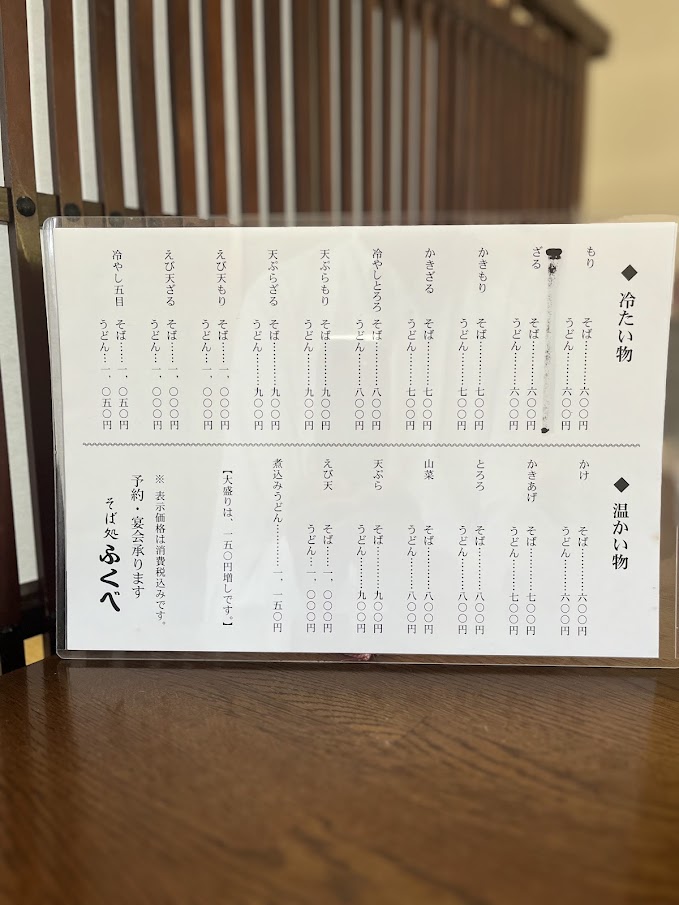 ◆ 冷たい物
もり そば………六〇〇円
うどん………六〇〇円
ざる そば………六〇〇円
うどん………六〇〇円
かきもり そば………七〇〇円
うどん………七〇〇円
かきざる そば………七〇〇円
うどん………七〇〇円
冷やしとろろ そば………八〇〇円
うどん………八〇〇円
天ぷらもり そば………九〇〇円
うどん………九〇〇円
天ぷらざる そば………九〇〇円
うどん………九〇〇円
えび天もり そば……一、〇〇〇円
うどん…一、〇〇〇円
えび天ざる そば……一、〇〇〇円
うどん…一、〇〇〇円
冷やし五目 そば……一、〇五〇円
うどん…一、〇五〇円
◆ 温かい物
かけ そば………六〇〇円
うどん………六〇〇円
かきあげ そば………七〇〇円
うどん………七〇〇円
とろろ そば………八〇〇円
うどん………八〇〇円
山菜 そば………八〇〇円
うどん………八〇〇円
天ぷら そば………九〇〇円
うどん………九〇〇円
えび天 そば……一、〇〇〇円
うどん…一、〇〇〇円
煮込みうどん………一、一五〇円
【大盛りは、一五〇円増しです。】
※ 表示価格は消費税込みです。
予約・宴会承ります
そば処 ふくべ